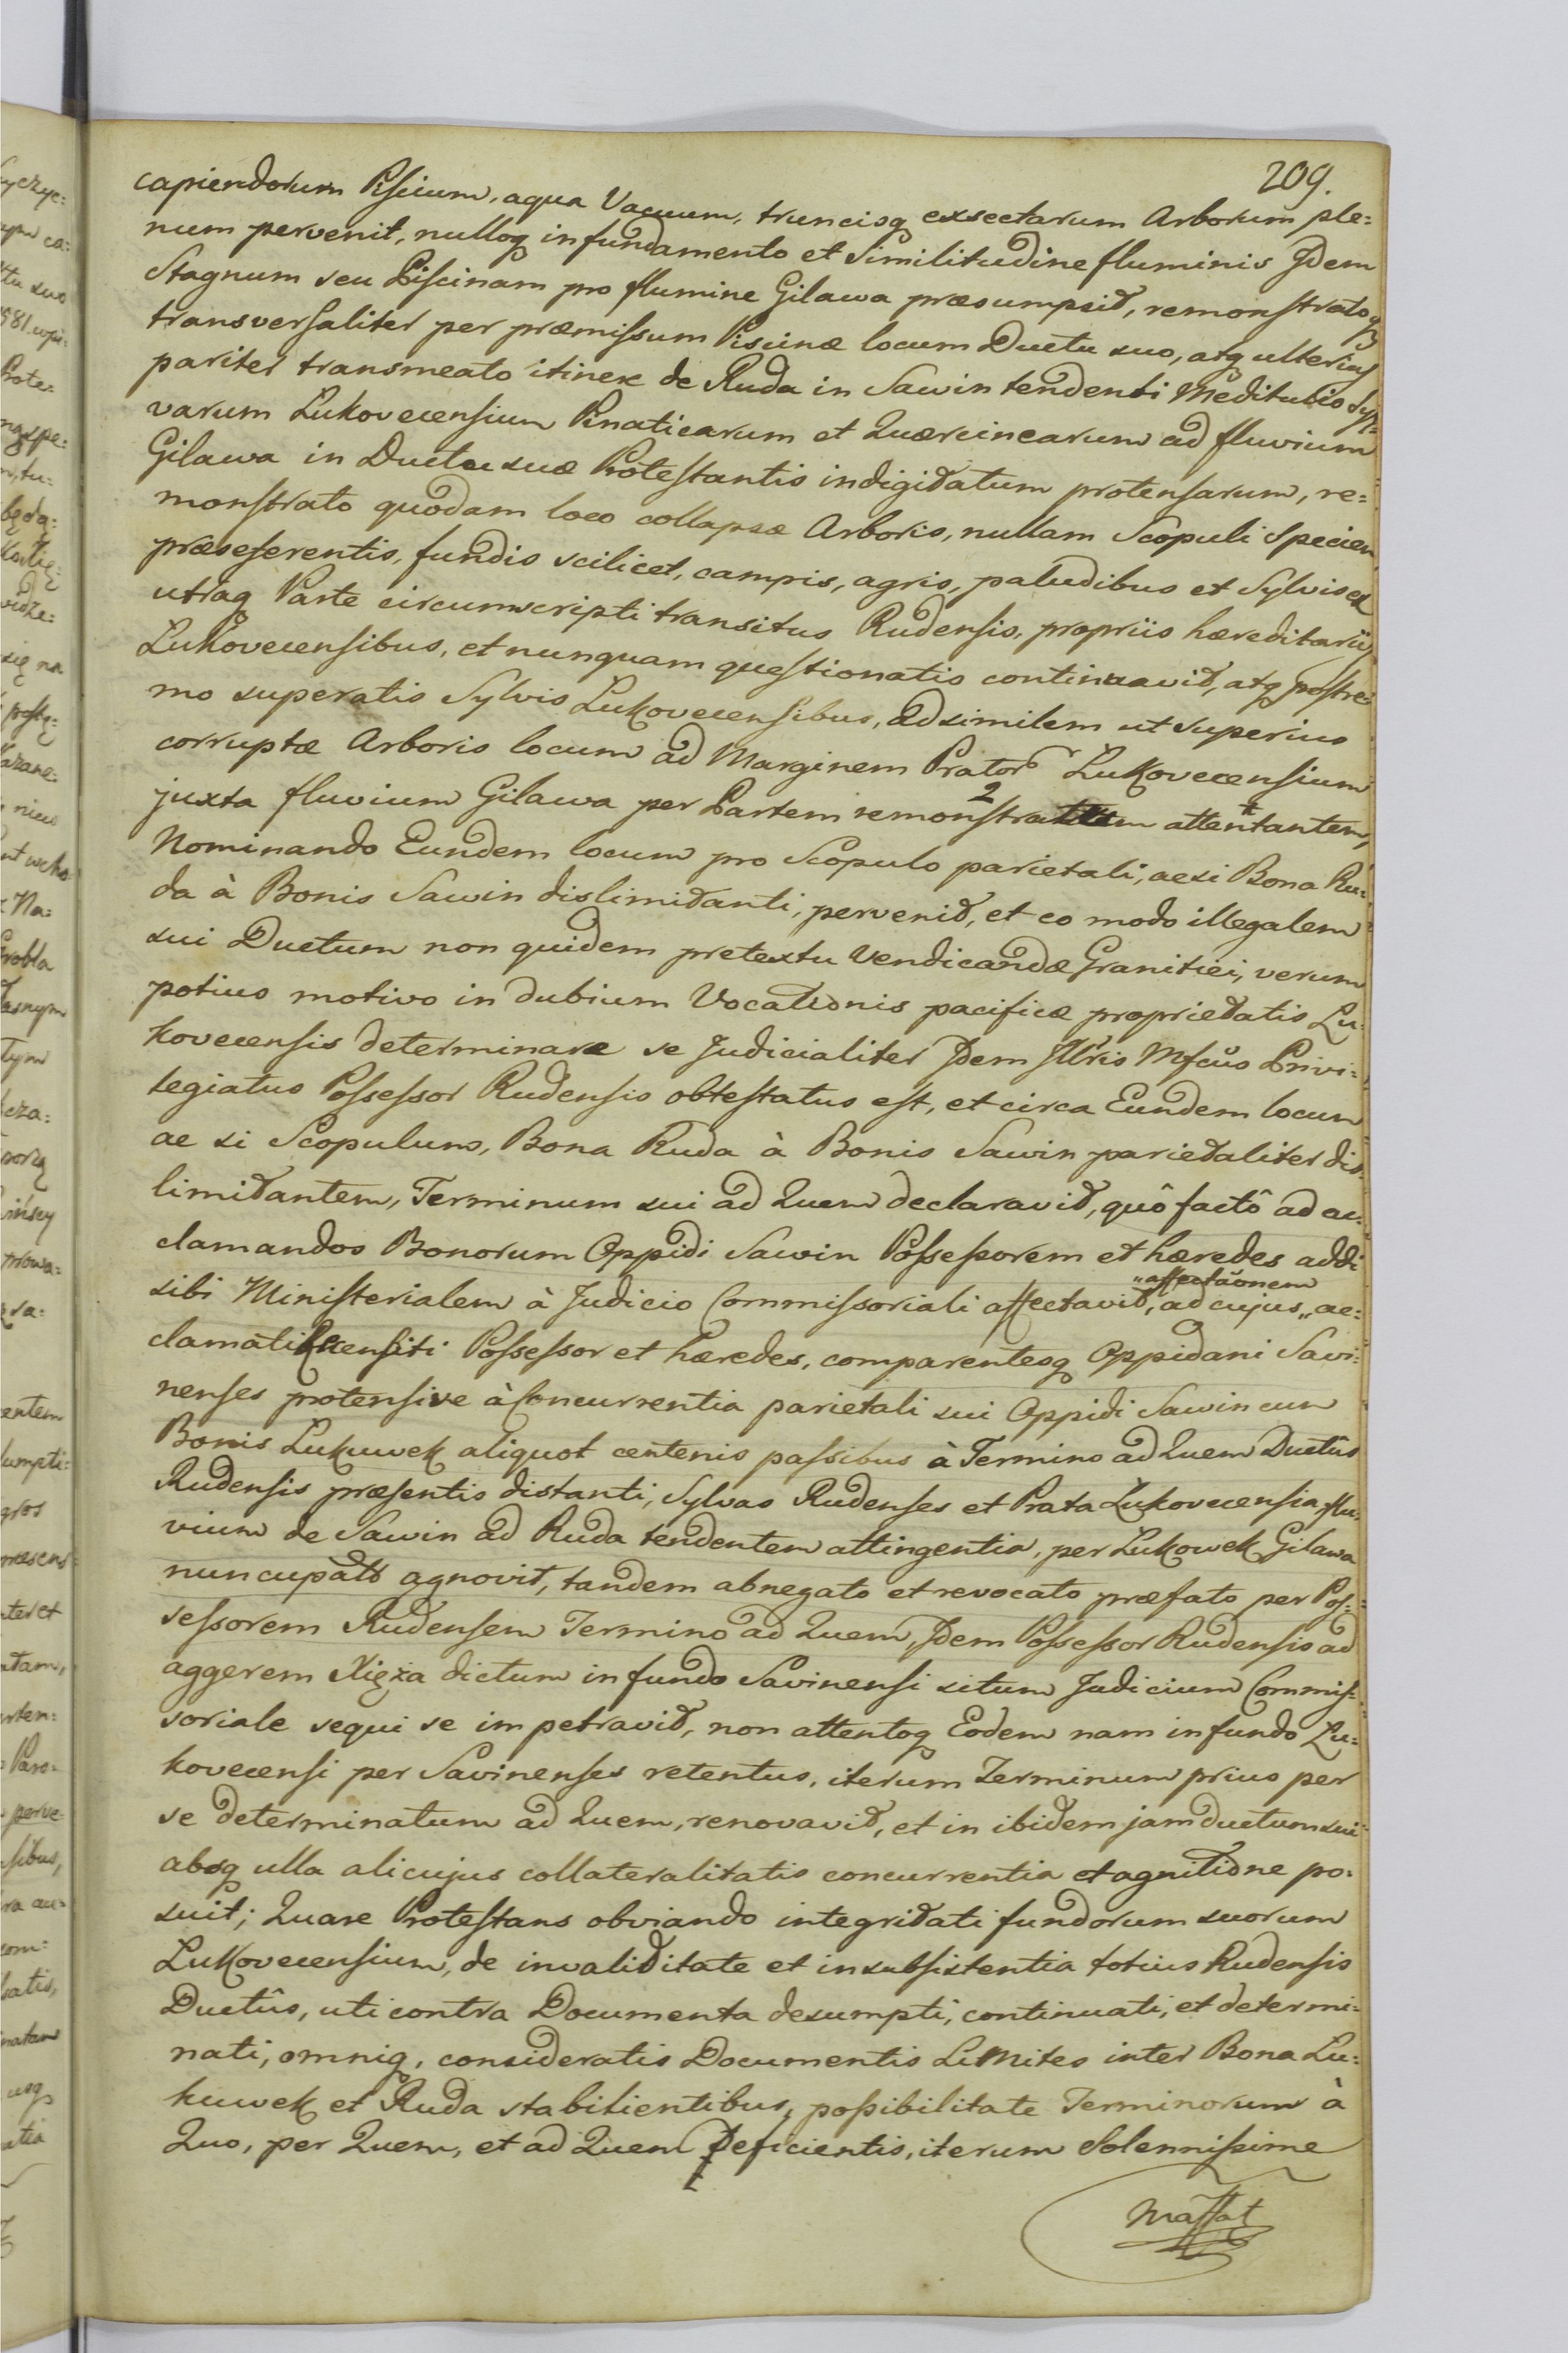 209.
capiendorum Piscium, aqua Vacuum, truncisq exsectarum Arborum ple=
num pervenit, nulloq in fundamento et Similitudine fluminis Idem
Stagnum seu Piscinam pro flumine Gilawa præsumpsit, remonstratoq
transversaliter per præmissum Piscinæ locum Ductu suo, atq ulterius
pariter transmeato itinere de Ruda in Sawin tendenti Meditulio Syl=
varum Lukovecensium Pinaticarum et Quærcinearum ad fluvium
Gilawa in Ductu suæ Protestantis indigitatum protensarum, re=
monstrato quodam loco collapsæ Arboris, nullam Scopuli Speciem
præseferentis, fundis scilicet, campis, agris, paludibus et Sylvis ex
utraq Parte circumscripti transitus Rudensis, propriis hæreditariis
Lukovecensibus, et nunquam questionatis continuavit, atq postre=
mo superatis Sylvis Lukovecensibus, ad similem ut superius
corruptæ Arboris locum ad Marginem Prator Lukovecensium
juxta fluvium Gilawa per Partem remonstratum attentantem,
Nominando Eundem locum pro Scopulo parietali, acsi Bona Ru=
da à Bonis Sawin dislimitanti, pervenit, et eo modo illegalem
sui Ductum non quidem pretextu Vendicandæ Granitiei, verum
potius motivo in dubium Vocationis pacificæ proprietatis Lu=
kovecensis determinare se Judicialiter Idem Illris Mfcus Privi=
legiatus Possessor Rudensis obtestatus est, et circa Eundem locum
ac si Scopulum, Bona Ruda à Bonis Sawin parietaliter dis=
limitantem, Terminum sui ad Quem declaravit, quô factô ad ac=
clamandos Bonorum Oppidi Sawin Possessorem et hæredes addi
sibi Ministerialem à Judicio Commissoriali affectavit, ad cujus „affectaonem„ ac=
clamati Recensiti Possessor et hæredes, comparentesq Oppidani Savi=
nenses protensive à Concurrentia parietali sui Oppidi Sawin cum
Bonis Lukuwek aliquot centenis passibus à Termino ad Quem Ductûs
Rudensis præsentis distanti, Sylvas Rudenses et Prata Lukovecensia flu=
vium de Sawin ad Ruda tendentem attingentia, per Lukowek Gilawa
nuncupato agnovit, tandem abnegato et revocato præfato per Pos=
sessorem Rudensem Termino ad Quem, Idem Possessor Rudensis ad
aggerem Xięża dictum in fundo Savinensi situm Judicium Commis=
soriale sequi se impetravit, non attentoq Eodem nam in fundo Lu=
kovecensi per Savinenses retentus, iterum Terminum prius per
se determinatum ad Quem, renovavit, et in ibidem jam ductum sui
absq ulla alicujus collateralitatis concurrentia et agnitione po=
suit; Quare Protestans obviando integritati fundorum suorum
Lukovecensium, de invaliditate et insubsistentia totius Rudensis
Ductûs, uti contra Documenta desumpti, continuati, et determi=
nati, omniq, consideratis Documentis Limites inter Bona Lu=
kuwek et Ruda stabilientibus, possibilitate Terminorum à
Quo, per Quem, et ad Quem Deficientis, iterum Solennissime